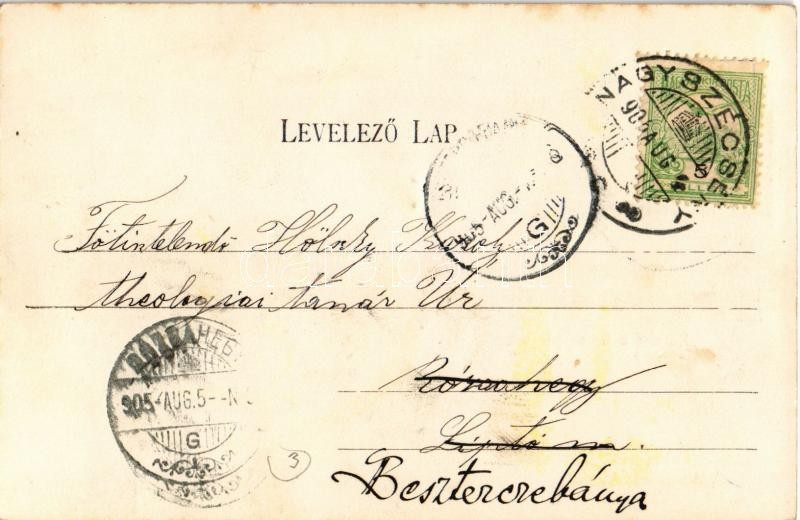 NAGYSZÉCSÉNY
905 AUG
LEVELEZŐ LAP
905-AUG.-
G
Főtisztelendő Hölszky Károly
theologiai tanár Úr
RÓZSAHEGY
905-AUG.5--N
G
Rózsahegy
Liptó m.
3
Besztercebánya